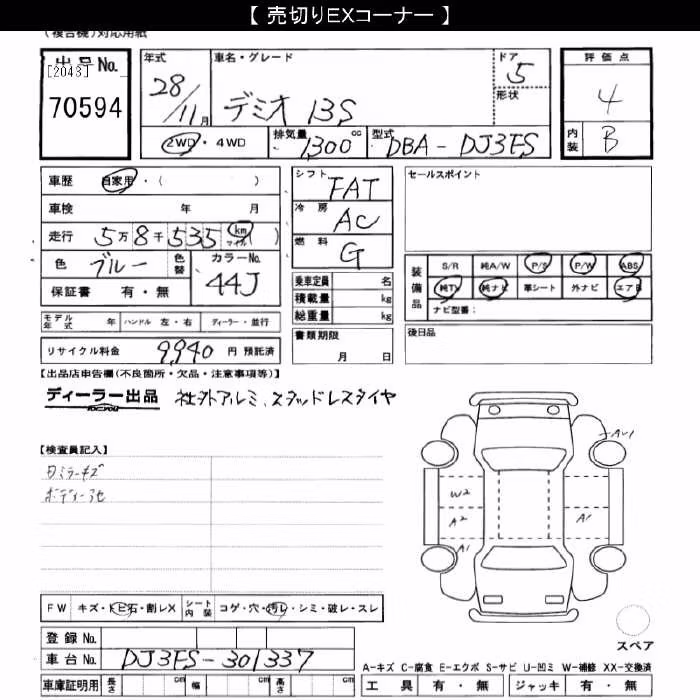 【 売切りEXコーナー 】
(複合機)対応用紙
出品No.
[2043]
70594
年式 28/11月
車名・グレード デミオ 13S
ドア 5
形状
評価点 4
内装 B
2WD ・ 4WD
排気量 1300 cc
型式 DBA-DJ3FS
車歴 自家用・( )
車検 年 月
走行 5万8千535 km マイル ( )
色 ブルー 色替
カラーNo. 44J
保証書 有・無
シフト FAT
冷房 AC
燃料 G
乗車定員 名
積載量 kg
総重量 kg
書類期限
月 日
セールスポイント
装備品
S/R 純A/W P/S P/W ABS
純TV 純ナビ 革シート 外ナビ エアB
ナビ型番:
後日品
モデル年式 年 ハンドル 左・右 ディーラー・並行
リサイクル料金 9,940 円 預託済
【出品店申告欄(不良箇所・欠品・注意事項等)】
ディーラー出品 社外アルミ、スタッドレスタイヤ
【検査員記入】
ミラーキズ
ボディー
A1
W2
A2
A1
A1
FW キズ・トビ石・割レX シート内装 コゲ・穴・汚レ・シミ・破レ・スレ
登録 No.
車台 No. DJ3FS-301337
車庫証明用 長さ cm 幅 cm 高さ cm
スペア
A-キズ C-腐食 E-エクボ S-サビ U-凹ミ W-補修 XX-交換済
工具 有・無 ジャッキ 有・無